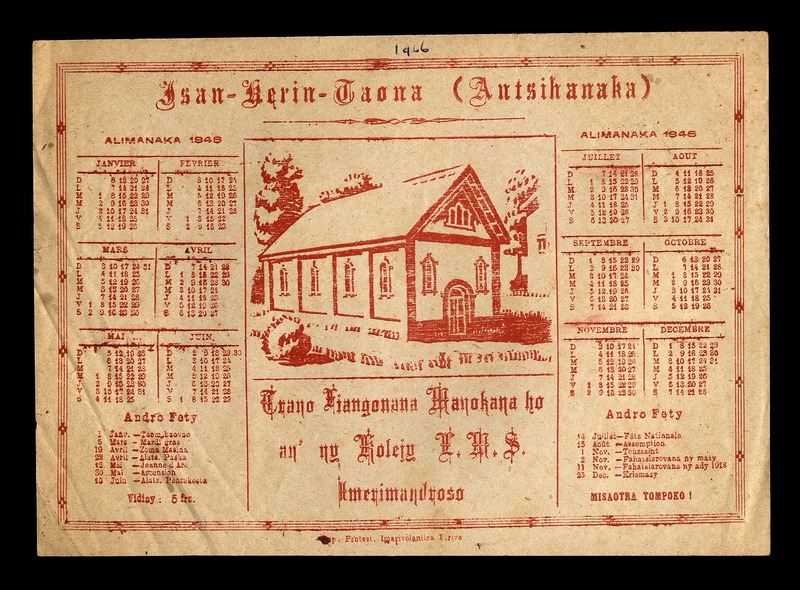 1946
Isan-Kerin-Taona (Antsihanaka)
ALIMANAKA 1946
JANVIER
D 6 13 20 27
L 7 14 21 28
M 1 8 15 22 29
M 2 9 16 23 30
J 3 10 17 24 31
V 4 11 18 25
S 5 12 19 26
FEVRIER
D 3 10 17 24
L 4 11 18 25
M 5 12 19 26
M 6 13 20 27
J 7 14 21 28
V 1 8 15 22
S 2 9 16 23
MARS
D 3 10 17 24 31
L 4 11 18 25
M 5 12 19 26
M 6 13 20 27
J 7 14 21 28
V 1 8 15 22 29
S 2 9 16 23 30
AVRIL
D 7 14 21 28
L 1 8 15 22 29
M 2 9 16 23 30
M 3 10 17 24
J 4 11 18 25
V 5 12 19 26
S 6 13 20 27
MAI
D 5 12 19 26
L 6 13 20 27
M 7 14 21 28
M 1 8 15 22 29
J 2 9 16 23 30
V 3 10 17 24 31
S 4 11 18 25
JUIN
D 2 9 16 23 30
L 3 10 17 24
M 4 11 18 25
M 5 12 19 26
J 6 13 20 27
V 7 14 21 28
S 1 8 15 22 29
Andro Fety
1 Janv. — Taom-baovao
5 Mars — Mardi gras
19 Avril — Zoma Masina
22 Avril — Alats. Paska
12 Mai — Jeanne d'Arc
30 Mai — Ascension
10 Juin — Alats. Pentekosta
Vidiny : 5 frs.
Trano Fiangonana Manokana ho
an' ny Kolejy L. M. S.
Imerimandroso
ALIMANAKA 1946
JUILLET
D 7 14 21 28
L 1 8 15 22 29
M 2 9 16 23 30
M 3 10 17 24 31
J 4 11 18 25
V 5 12 19 26
S 6 13 20 27
AOUT
D 4 11 18 25
L 5 12 19 26
M 6 13 20 27
M 7 14 21 28
J 1 8 15 22 29
V 2 9 16 23 30
S 3 10 17 24 31
SEPTEMBRE
D 1 8 15 22 29
L 2 9 16 23 30
M 3 10 17 24
M 4 11 18 25
J 5 12 19 26
V 6 13 20 27
S 7 14 21 28
OCTOBRE
D 6 13 20 27
L 7 14 21 28
M 1 8 15 22 29
M 2 9 16 23 30
J 3 10 17 24 31
V 4 11 18 25
S 5 12 19 26
NOVEMBRE
D 3 10 17 24
L 4 11 18 25
M 5 12 19 26
M 6 13 20 27
J 7 14 21 28
V 1 8 15 22 29
S 2 9 16 23 30
DECEMBRE
D 1 8 15 22 29
L 2 9 16 23 30
M 3 10 17 24 31
M 4 11 18 25
J 5 12 19 26
V 6 13 20 27
S 7 14 21 28
Andro Fety
14 Juillet — Fête Nationale
15 Août — Assomption
1 Nov. — Toussaint
2 Nov. — Fahatsiarovana ny maty
11 Nov. — Fahatsiarovana ny ady 1918
25 Dec. — Krismasy
MISAOTRA TOMPOKO !
Imp. Protest. Imarivolanitra T.rive